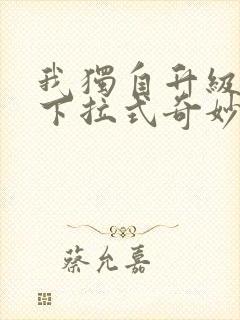 我獨自升級
下拉式奇妙
蔡允嘉